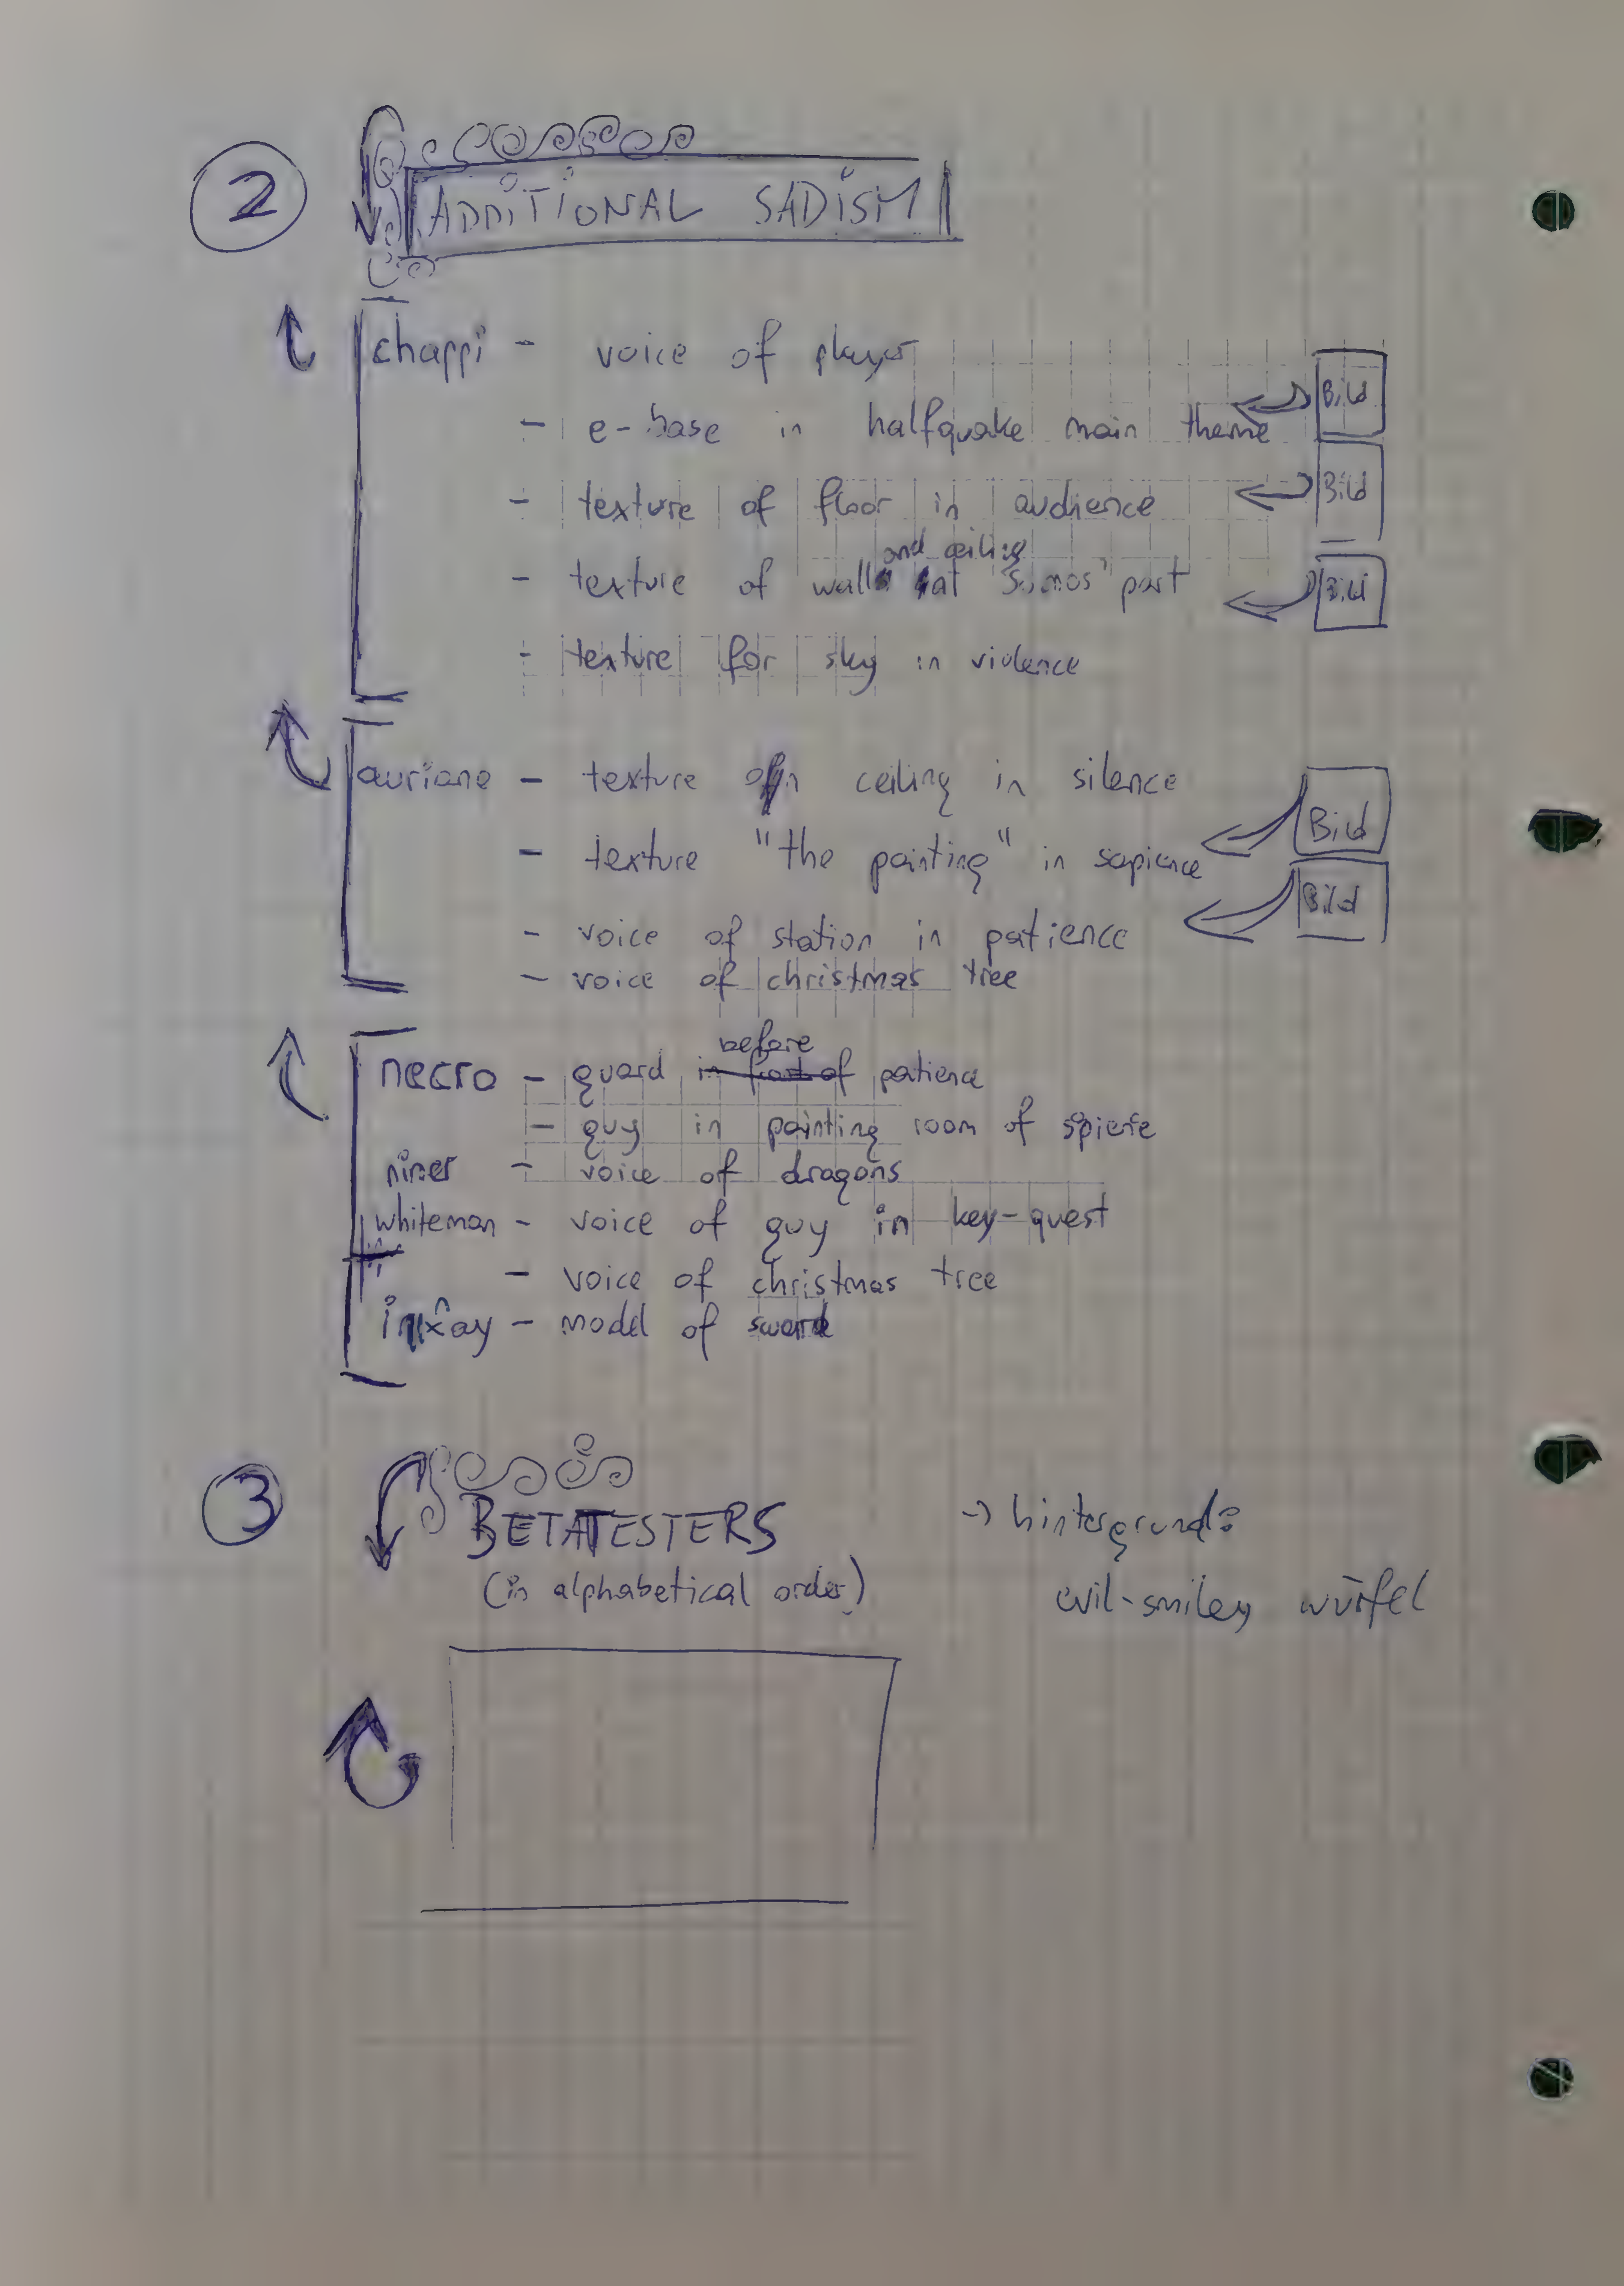 2
ADDITIONAL SADISM
chappi - voice of player
- e-base in halfquake main theme
Bild
- texture of floor in audience
Bild
and ceiling
- texture of wall at "somos" part
Bild
- texture for sky in violence
auriane - texture on ceiling in silence
- texture "the painting" in sapience
Bild
- voice of station in patience
Bild
- voice of christmas tree
before
necro - guard in front of patience
- guy in painting room of
- voice of dragons
whiteman - voice of guy in key-quest
- voice of christmas tree
- model of sword
3
BETATESTERS
(in alphabetical order)
→ hintergrund:
evil-smiley würfel